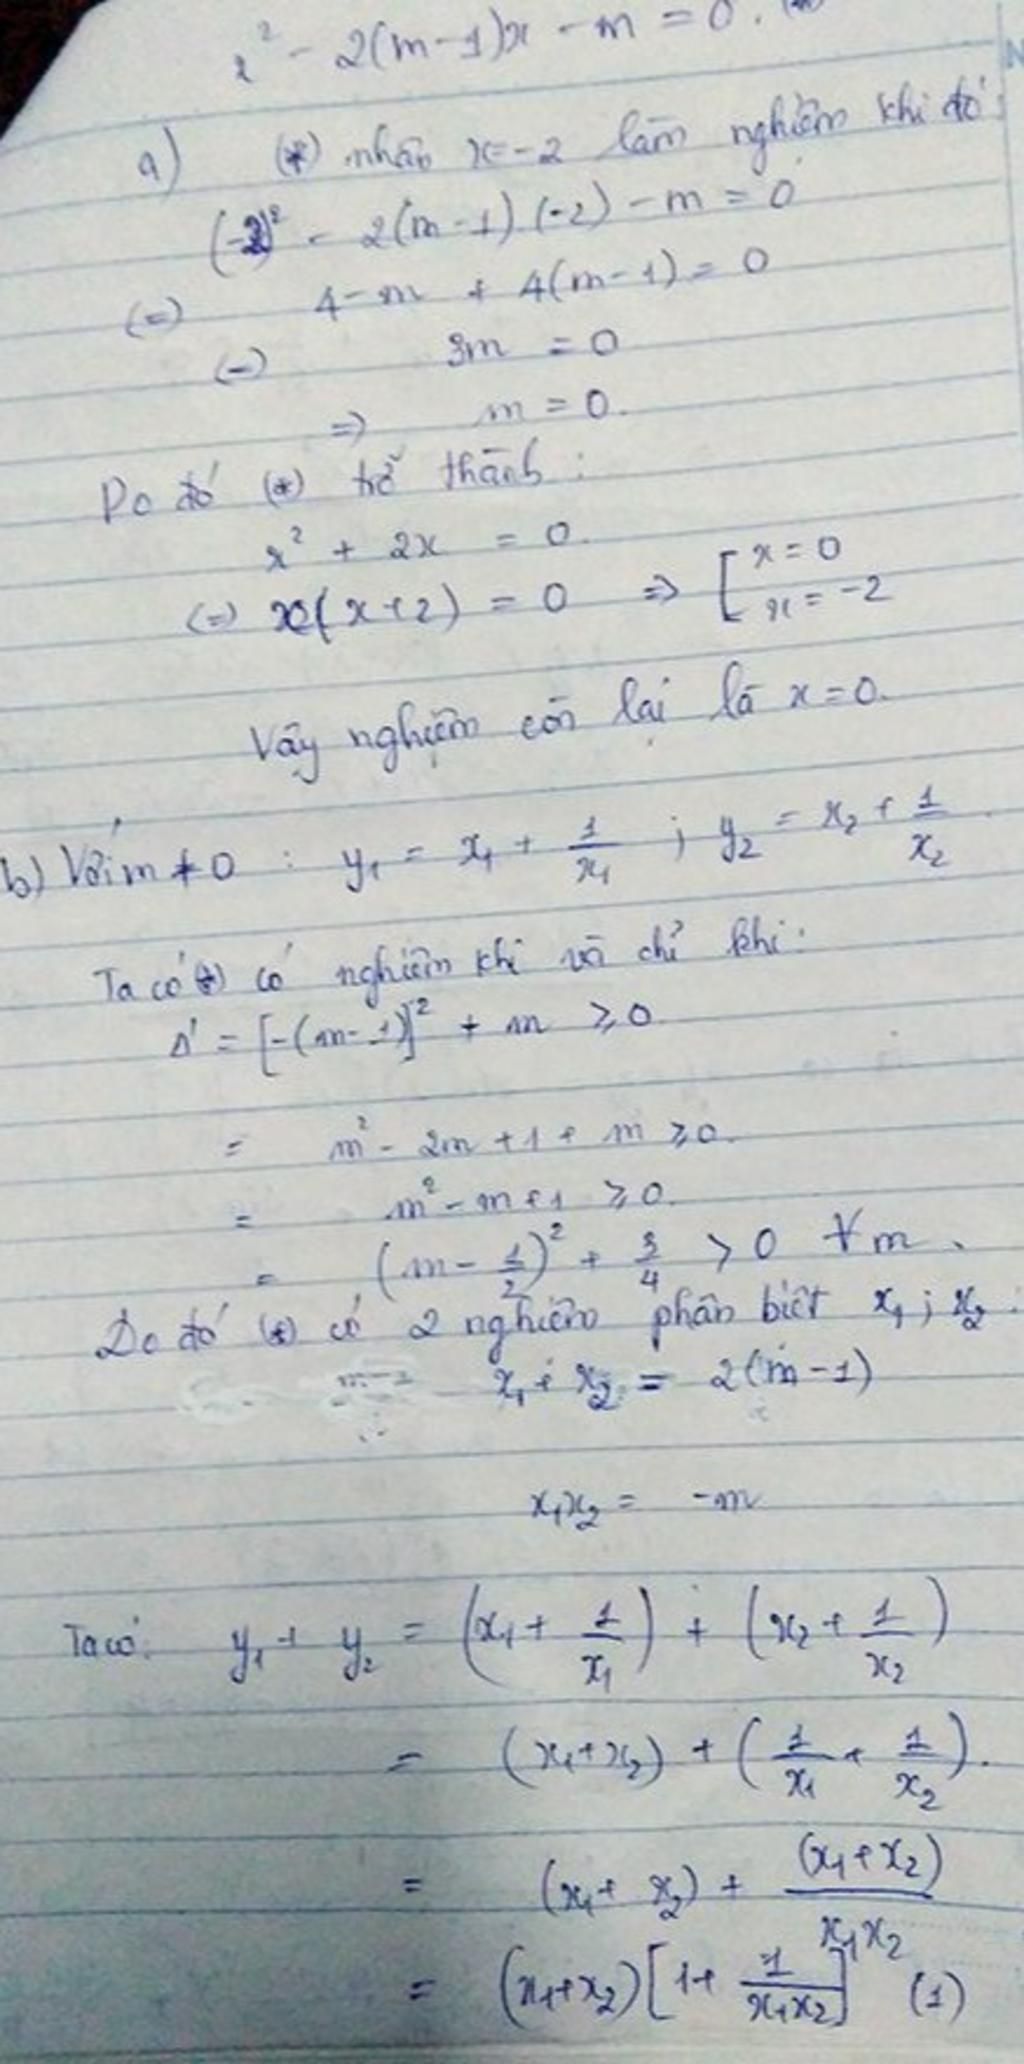 x² - 2(m-1)x - m = 0. (*)
a) (*) nhận x = -2 làm nghiệm khi đó:
(-2)² - 2(m-1)(-2) - m = 0
(=) 4 - m + 4(m-1) = 0
(=) 3m = 0
=> m = 0.
Do đó (*) trở thành:
x² + 2x = 0.
(=) x(x+2) = 0 => [ x = 0
x = -2
Vậy nghiệm còn lại là x = 0.
b) Với m ≠ 0 : y₁ = x₁ + 1/x₁ ; y₂ = x₂ + 1/x₂
Ta có (*) có nghiệm khi và chỉ khi:
Δ' = [-(m-1)]² + m ≥ 0
= m² - 2m + 1 + m ≥ 0.
= m² - m + 1 ≥ 0.
= (m - 1/2)² + 3/4 > 0 ∀m.
Do đó (*) có 2 nghiệm phân biệt x₁; x₂ :
x₁ + x₂ = 2(m-1)
x₁x₂ = -m
Ta có: y₁ + y₂ = (x₁ + 1/x₁) + (x₂ + 1/x₂)
= (x₁+x₂) + (1/x₁ + 1/x₂).
= (x₁+x₂) + (x₁+x₂)/x₁x₂
= (x₁+x₂)[1 + 1/x₁x₂] (1)